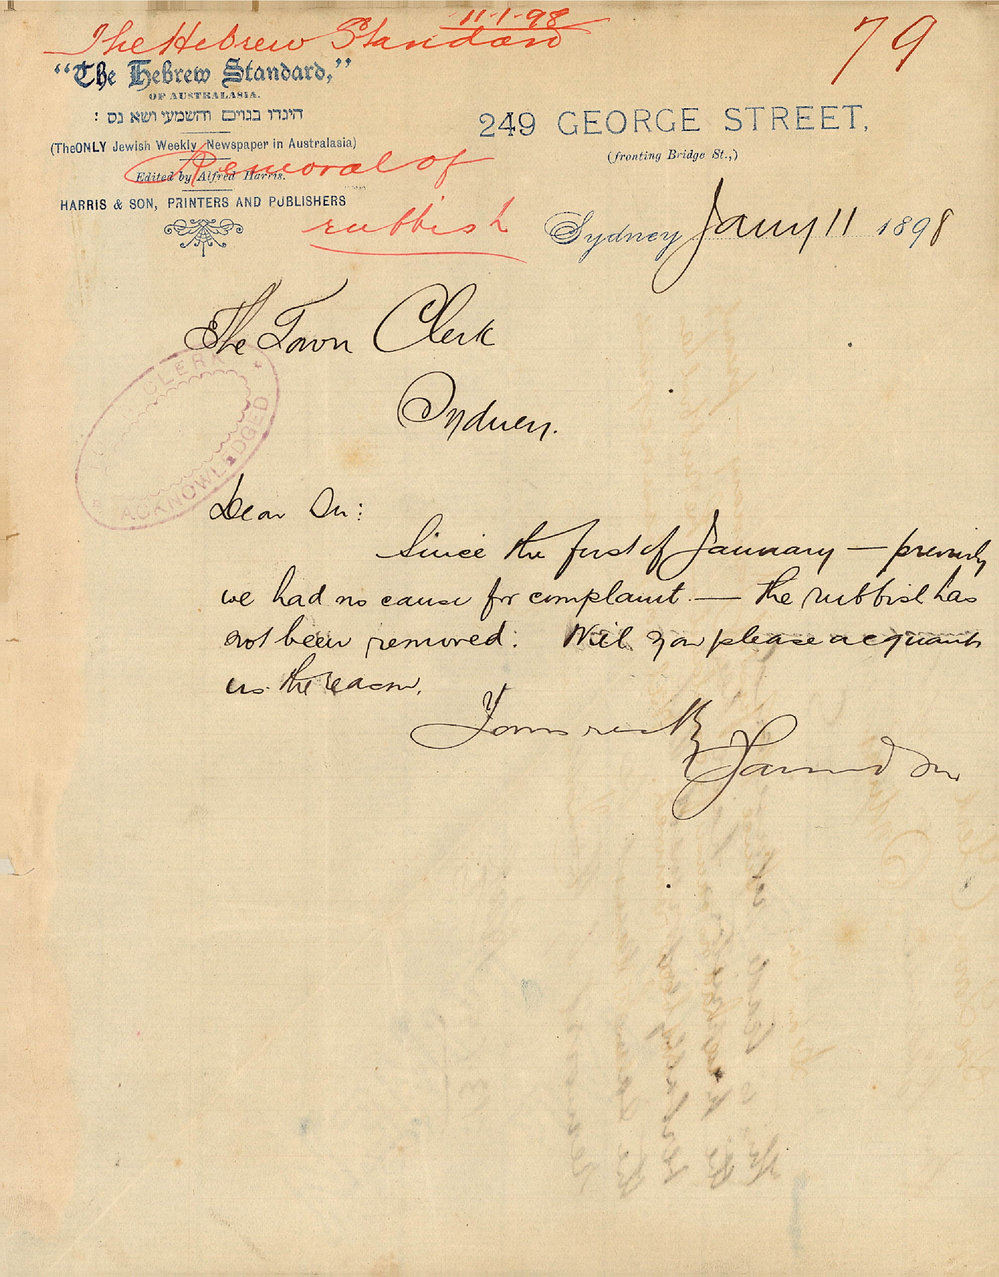 11-1-98
The Hebrew Standard
79
"The Hebrew Standard,"
OF AUSTRALASIA.
הגידו בגוים והשמיעו ושאו נס :
(The ONLY Jewish Weekly Newspaper in Australasia)
Edited by Alfred Harris.
HARRIS & SON, PRINTERS AND PUBLISHERS
Removal of
rubbish
249 GEORGE STREET,
(fronting Bridge St.,)
Sydney Jany 11 1898
The Town Clerk
Sydney.
CLERK
ACKNOWLEDGED
Dear Sir:
Since the first of January — previously
we had no cause for complaint — the rubbish has
not been removed. Will you please acquaint
us the reason.
Yours
Harris & Son